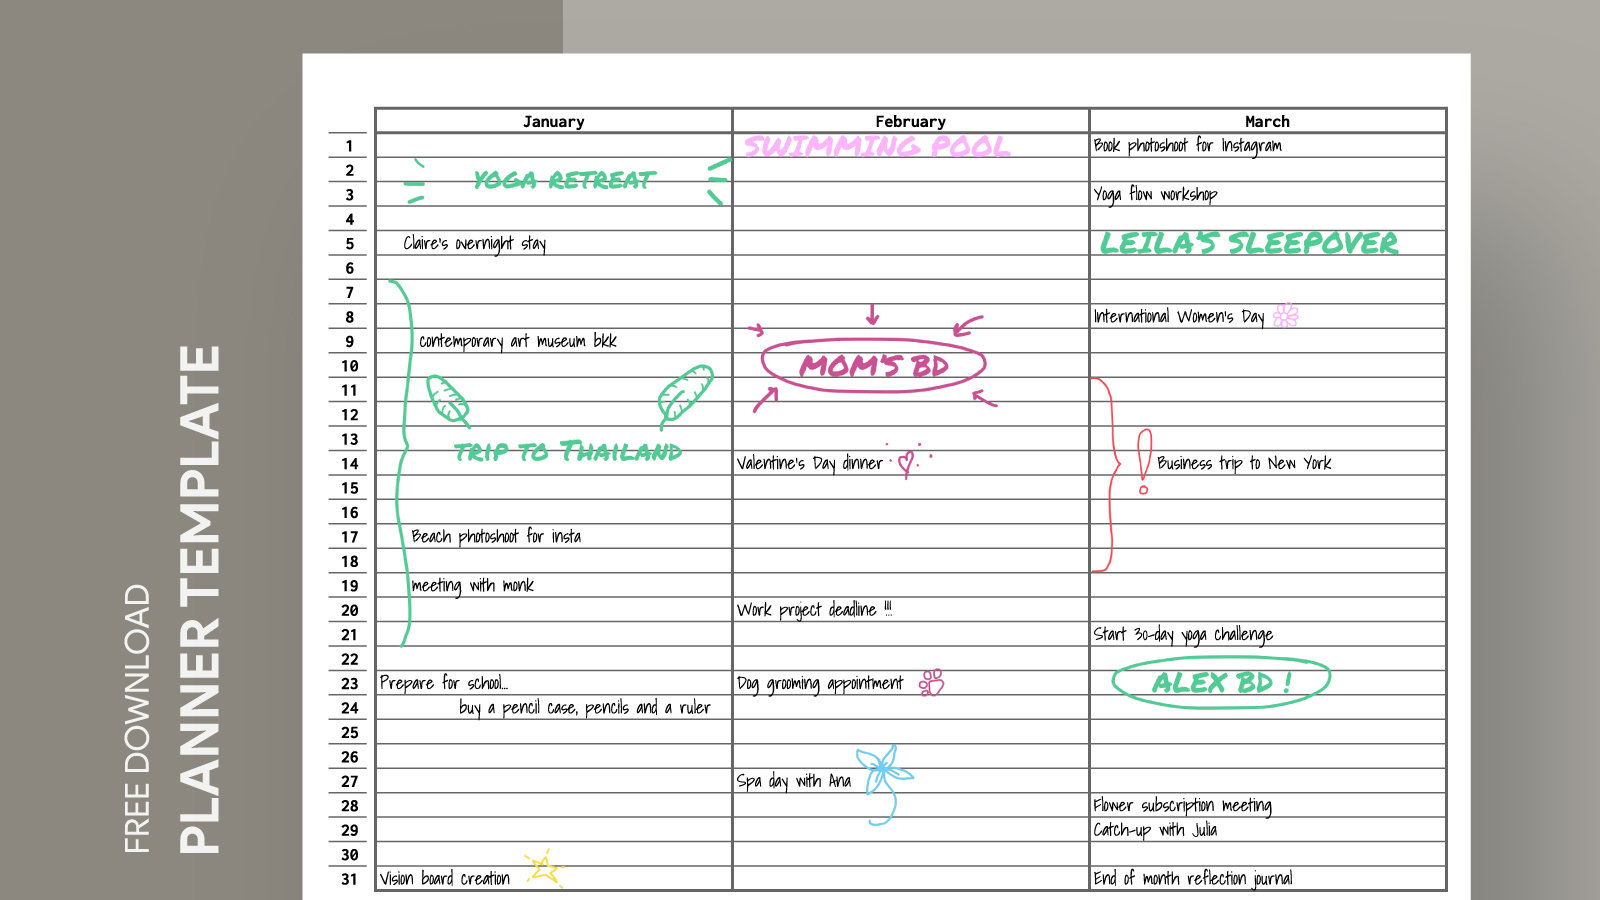 FREE DOWNLOAD
PLANNER TEMPLATE
January February March
1 SWIMMING POOL Book photoshoot for Instagram
2 YOGA RETREAT
3 Yoga flow workshop
4
5 Claire's overnight stay LEILA'S SLEEPOVER
6
7
8 International Women's Day
9 contemporary art museum bkk
10 MOM'S BD
11
12
13 TRIP TO THAILAND
14 Valentine's Day dinner Business trip to New York
15
16
17 Beach photoshoot for insta
18
19 meeting with monk
20 Work project deadline !!!
21 Start 30-day yoga challenge
22
23 Prepare for school... Dog grooming appointment ALEX BD !
24 buy a pencil case, pencils and a ruler
25
26
27 Spa day with Ana
28 Flower subscription meeting
29 Catch-up with Julia
30
31 Vision board creation End of month reflection journal